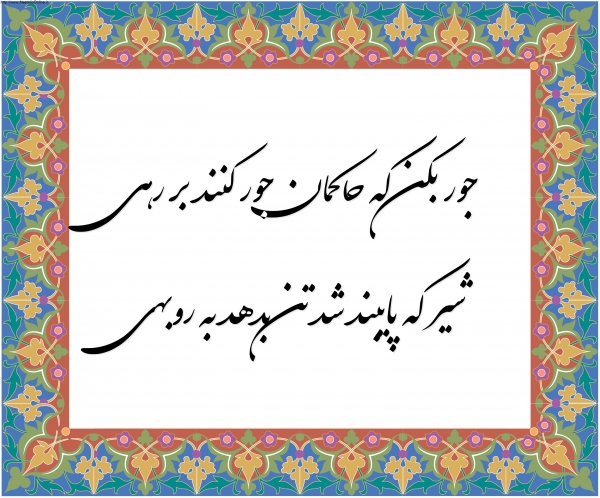 جور بکن که حاکمان جور کنند بر رهی
شیر که پایبند شد تن بدهد به روبهی